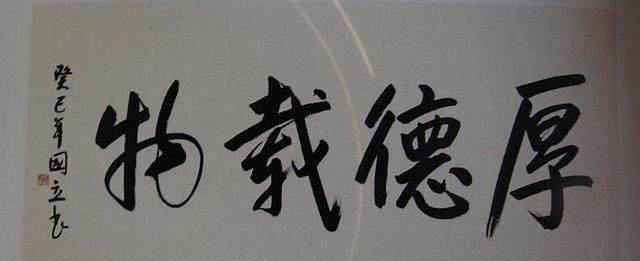 厚德载物
癸巳年國立书